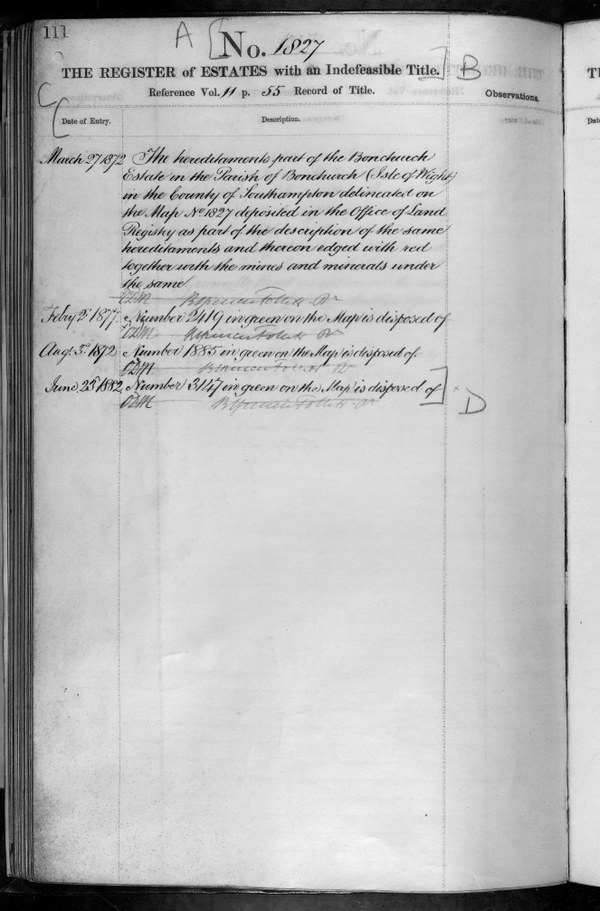 111
A [
No. 1827
THE REGISTER of ESTATES with an Indefeasible Title. ] B
Reference Vol. 11 p. 55 Record of Title.
C (
Observations.
Date of Entry. Description.
March 27 1872 The hereditaments part of the Bonchurch
Estate in the Parish of Bonchurch (Isle of Wight)
in the County of Southampton delineated on
the Map No 1827 deposited in the Office of Land
Registry as part of the description of the same
hereditaments and thereon edged with red
together with the mines and minerals under
the same.
Feby 2d 1877. Number 2419 in green on the Map is disposed of
Augt 3d 1872 Number 1885 in green on the Map is disposed of.
June 23d 1882 Number 3147 in green on the Map is disposed of ]
D